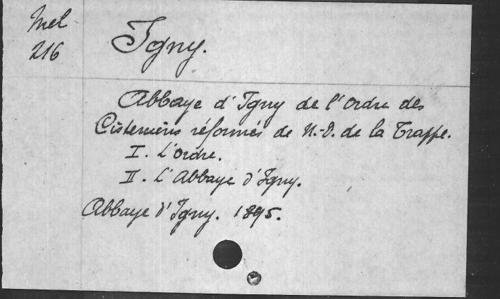 Mel
216
Igny.
Abbaye d'Igny de l'Ordre des
Cisterciens réformés de N.-D. de la Trappe.
I. L'Ordre.
II. L'Abbaye d'Igny.
Abbaye d'Igny. 1895.